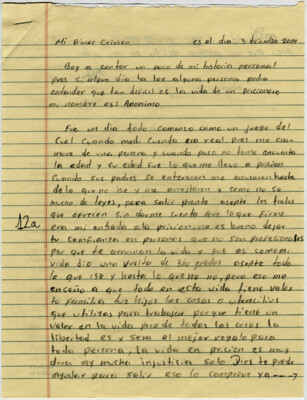 Mi Primer Crimen es el dia 3 diciembre 2014
Boy a contar un poco de mi historia personal
pues si algun dia la lee alguna persona podra
entender que tan dificil es la vida de un prisionero
mi nombre es: Anonimo
Fue un dia todo comenso como un juego del
Cuel cuando medi cuenta era real pues me enamo
more de una persona y cuando paso no tome encuenta
la edad y su edad fue lo que me llevo a prision
Cuando sus padres se enteraron me acusaron hasta
de lo que no ise y me arrestaron y como no se
mucho de leyes, para salir pronto asepte los tratos
que ofrecen sin darme cuenta que lo que firme
era mi entrada a la prision no es bueno dejar
12a
tu confianza en personas que no son profesionales
por que te arruinan la vida y fue asi como mi
vida dio una vuelta de 360 grados asepte todo
lo que ise y hasta lo que no no, pero eso me
enseño a que todo en esta vida tiene valor
tu familia tus hijos las cosas o utencilios
que utilizas para trabajar porque tiene un
valor en la vida pero de todas las cosas la
libertad es y sera el mejor regalo para
toda persona, la vida en prision es muy
dura ay mucha injusticia solo Dios te puede
ayudar para salir eso lo comprobe ya